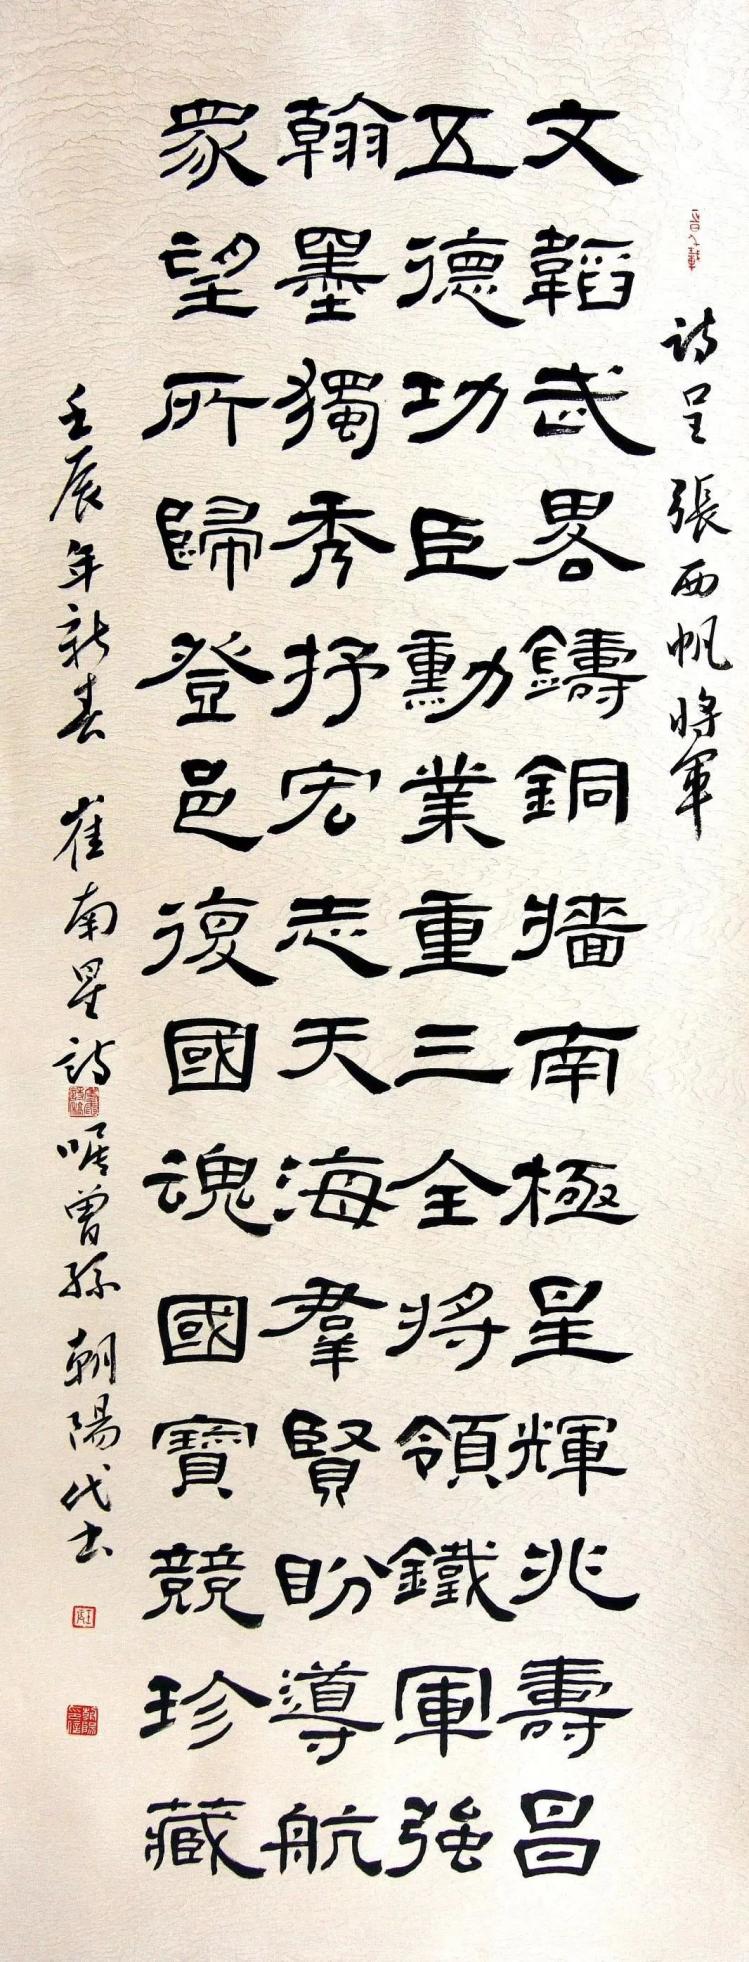 詩呈張西帆將軍
文韜武畧鑄銅牆南極星輝兆壽昌
五德功臣勳業重三全將領鐵軍強
翰墨獨秀抒宏志天海羣賢盼導航
眾望所歸登邑復國魂國寶競珍藏
壬辰年新春 崔南星詩 嘱曾孫朝陽代書